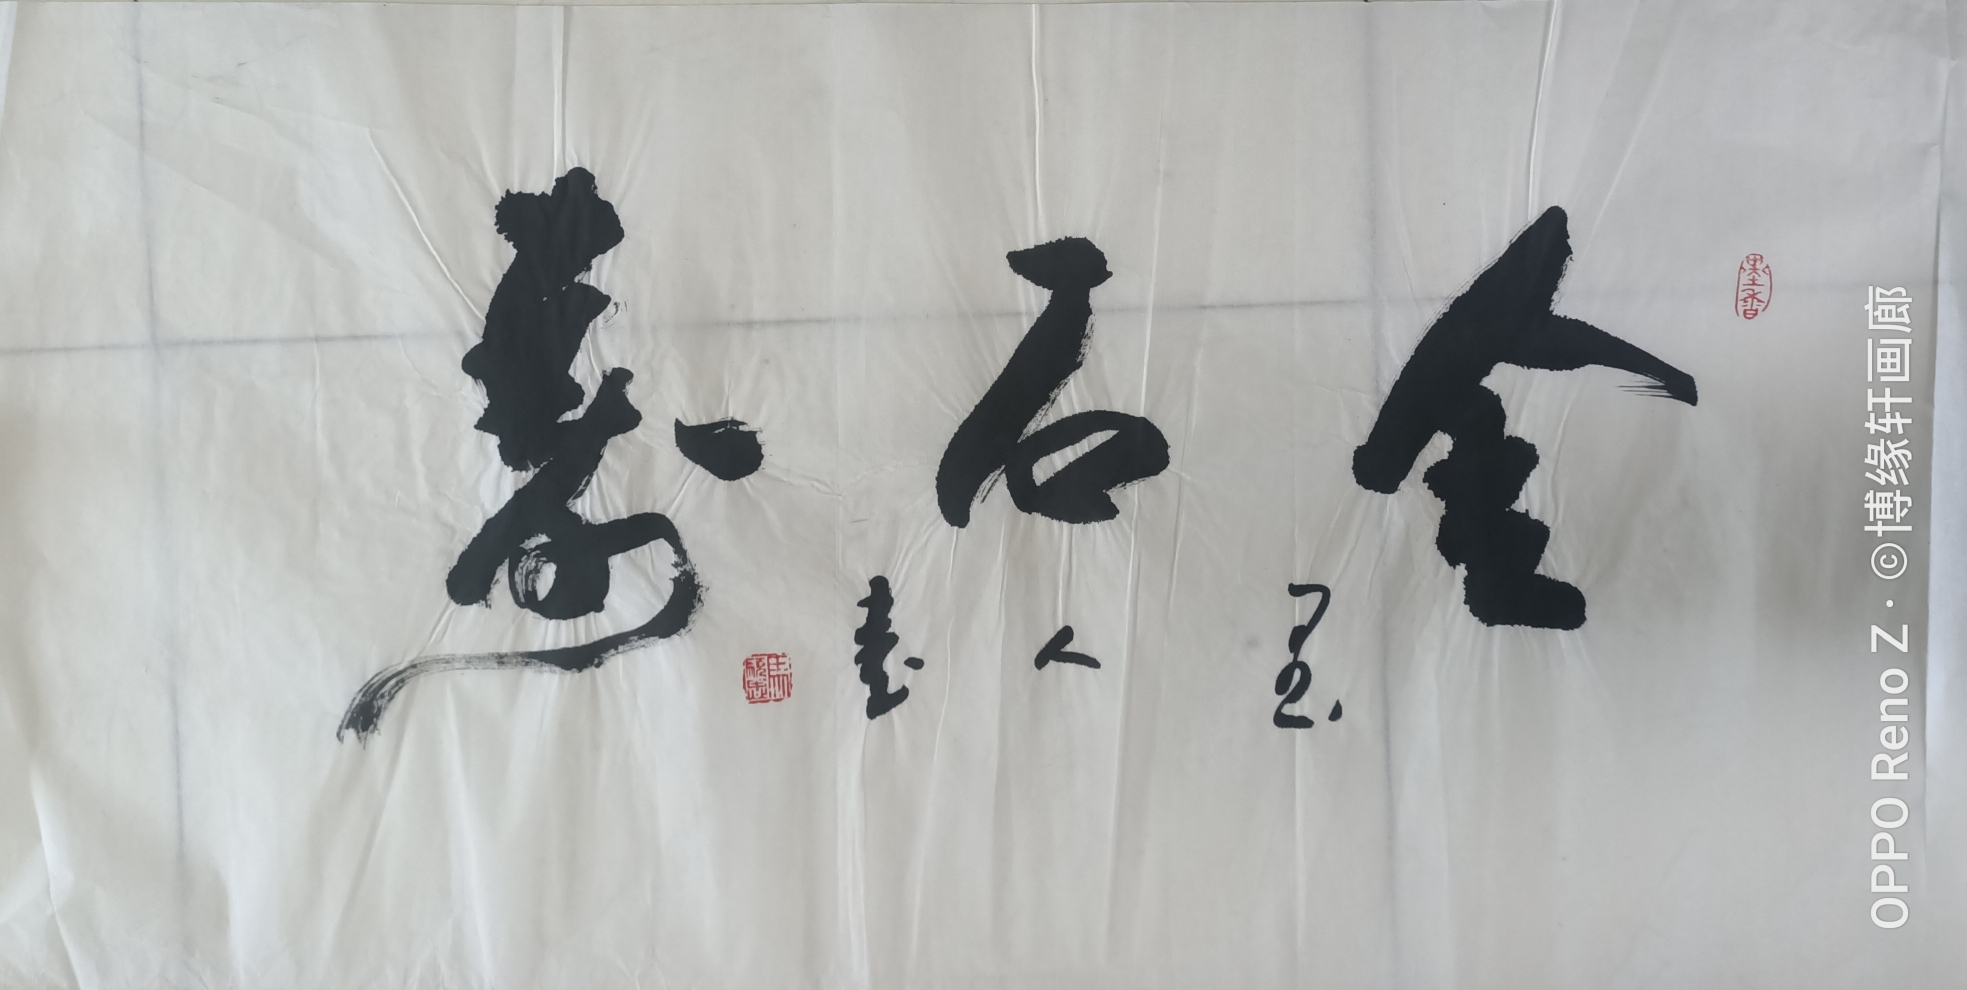 金石寿
人书
墨香
OPPO Reno Z · ©博缘轩画廊